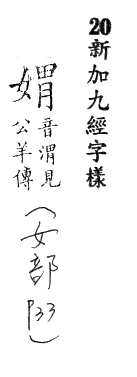 20新加九經字樣
媦
音渭見
公羊傳
（女部P33）